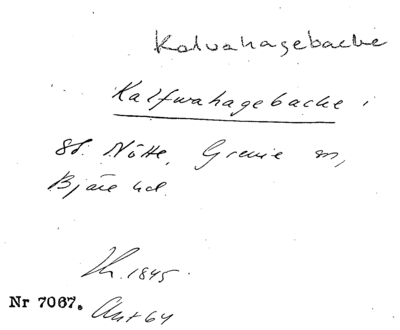 Kalvahagebacke
Kalfwahagebacke i
St. Nötte, Grevie sn,
Bjäre hd.
1845.
Nr 7067.
64